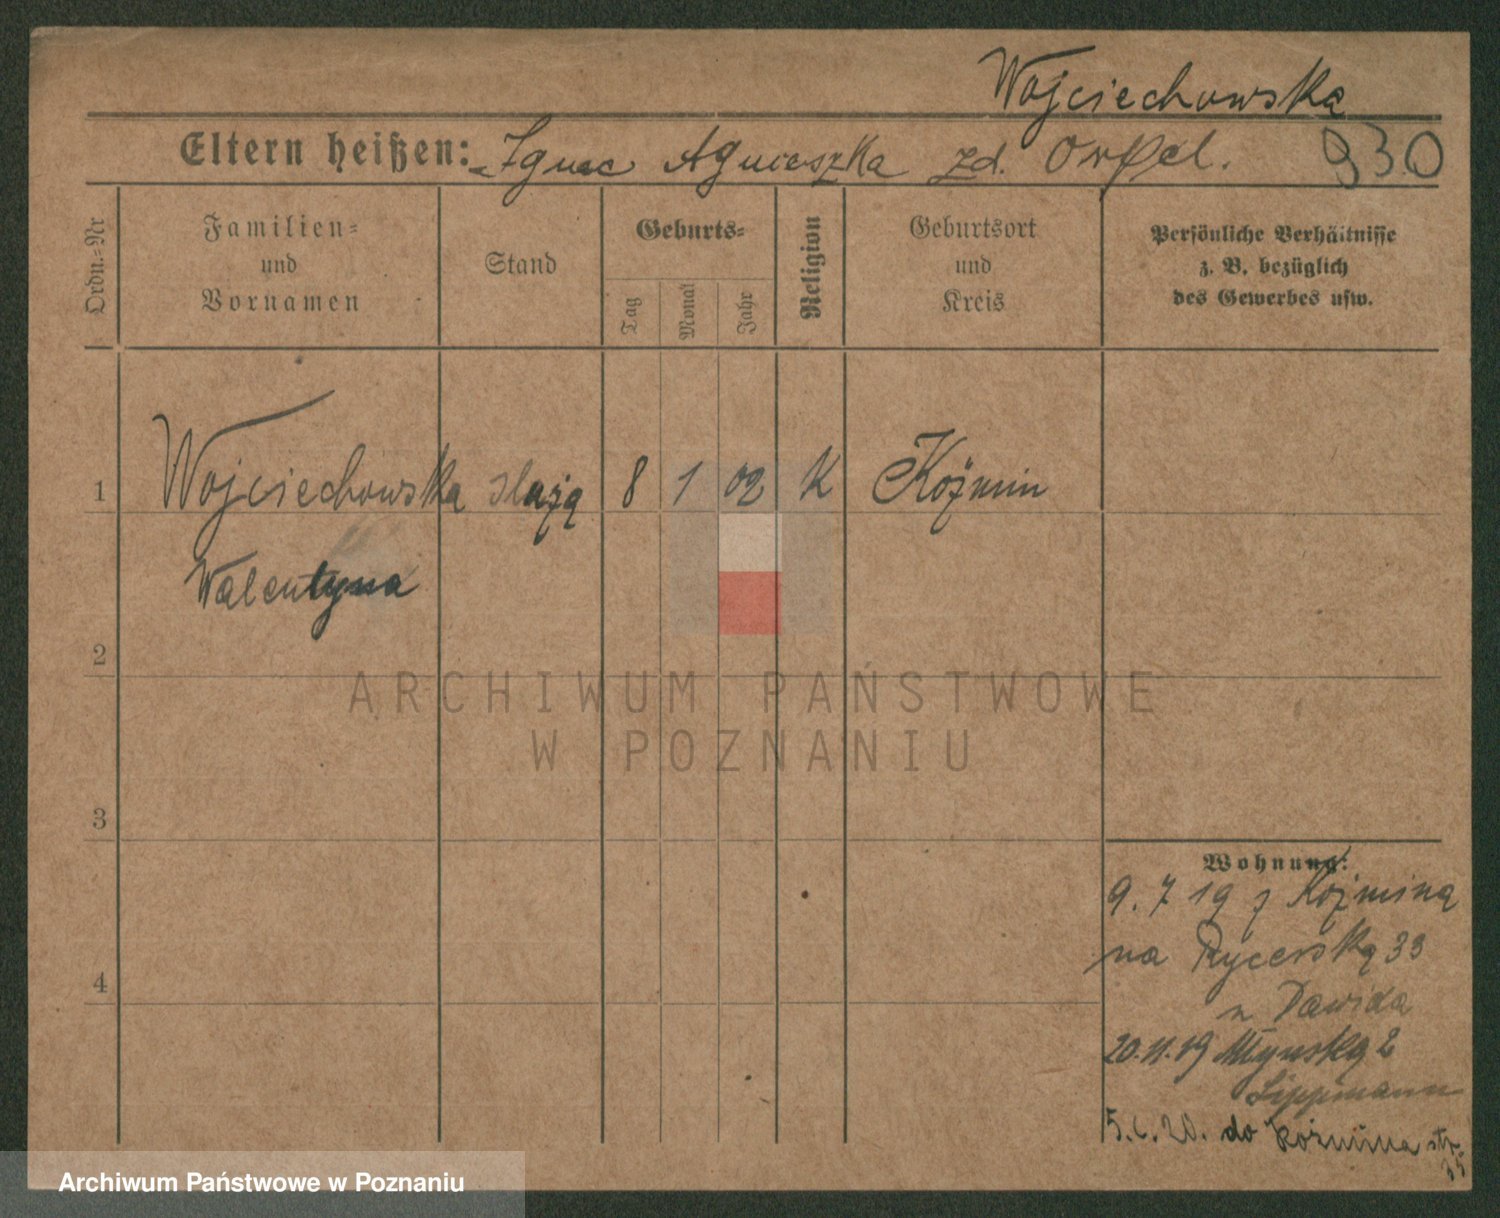 Wojciechowska
Eltern heißen: Ignac Agnieszka zd. Orpel. 930
Ordn.-Nr
Familien-
und
Vornamen
Stand
Geburts-
Tag
Monat
Jahr
Religion
Geburtsort
und
Kreis
Persönliche Verhältnisse
z. B. bezüglich
des Gewerbes usw.
1 Wojciechowska służą 8 1 02 K Koźmin
Walentyna
2
3
4
Wohnung:
9. 7 19 z Koźmina
na Rycerską 33
u Dawida
20.11.19 Młyńską 2
Lippmann
5.6.20. do Koźmina str.
35
ARCHIWUM PAŃSTWOWE
W POZNANIU
Archiwum Państwowe w Poznaniu